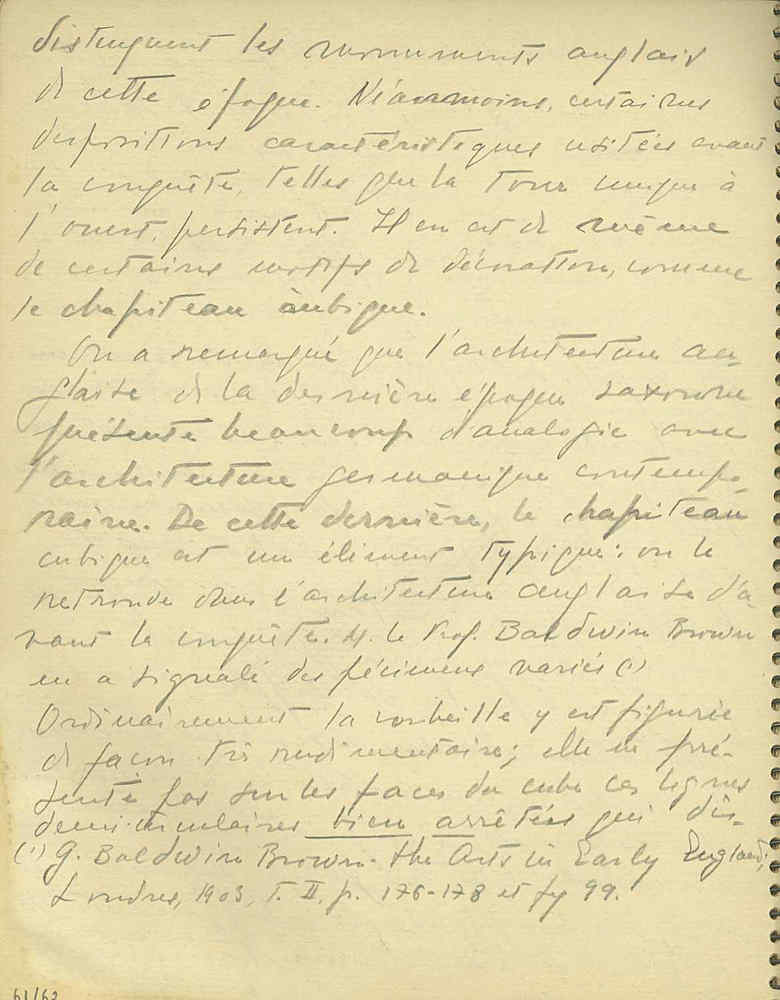 distinguent les monuments anglais
de cette époque. Néanmoins, certaines
dispositions caractéristiques usitées avant
la conquête, telles que la tour unique à
l'ouest, persistent. Il en est de même
de certains motifs de décoration, comme
le chapiteau cubique.
On a remarqué que l'architecture an-
glaise de la dernière époque saxonne
présente beaucoup d'analogie avec
l'architecture germanique contempo-
raine. De cette dernière, le chapiteau
cubique est un élément typique: on le
retrouve dans l'architecture anglaise d'a-
vant la conquête. M. le Prof. Baldwin Brown
en a signalé des spécimens variés (1)
Ordinairement la corbeille y est figurée
de façon très rudimentaire; elle ne pré-
sente pas sur les faces du cube ces lignes
demi-circulaires bien arrêtées qui dis-
(1) G. Baldwin Brown. the Arts in Early England,
Londres, 1903, T. II, p. 176-178 et fg 99.
61/62